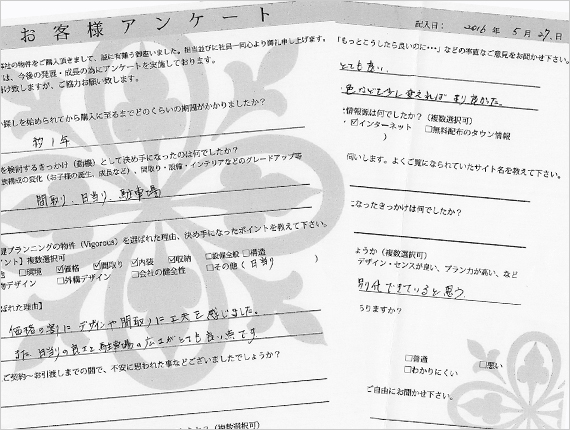 お客様アンケート
記入日： 2016 年 5 月 27 日
物件をご購入頂きまして、誠に有難う御座いました。担当並びに社員一同心より御礼申し上げます。
は、今後の発展・成長の為にアンケートを実施しております。
掛け致しますが、ご協力お願い致します。
探しを始められてから購入に至るまでどのくらいの期間がかかりましたか？
約1年
を検討するきっかけ（動機）として決め手になったのは何でしたか？
族構成の変化（お子様の誕生、成長など）、間取り・設備・インテリアなどのグレードアップ等
間取り、日当り、駐車場
プランニングの物件（Vigorous）を選ばれた理由、決め手になったポイントを教えて下さい。
ント】複数選択可
□環境 ☑価格 ☑間取り ☑内装 ☑収納 □設備全般 □構造
デザイン □外構デザイン □会社の健全性 □その他（日当り ）
ばれた理由】
価格の割にデザインや間取りに工夫を感じました。
また、日当りの良さと駐車場の広さがとても良い点です
ご契約～お引渡しまでの間で、不安に思われた事などございましたでしょうか？
（複数選択可）
「もっとこうしたら良いのに・・・」などの率直なご意見をお聞かせ下さい。
とても良い。
色などを少し変えれば より良かった。
情報源は何でしたか？（複数選択可）
☑インターネット □無料配布のタウン情報
）
伺いします。よくご覧になられていたサイト名を教えて下さい。
なったきっかけは何でしたか？
ょうか（複数選択可）
デザイン・センスが良い、プラン力が高い、など
別化できていると思う
うりますか？
□普通 □悪い
□わかりにくい
ご自由にお聞かせ下さい。